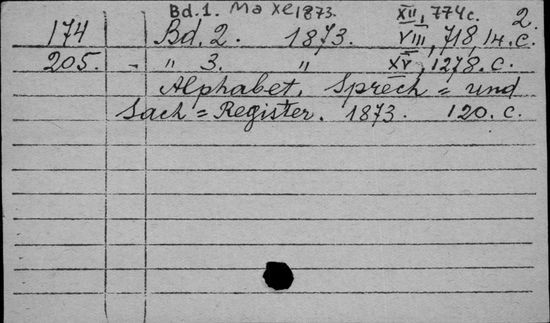 Bd. 1. Ma xe 1873. XII, 774 c. 2.
174 Bd. 2. 1873. VIII, 718, 14. c.
205. - " 3. " XV, 1278. c.
Alphabet. Sprech = und
Sach = Register. 1873. 120. c.